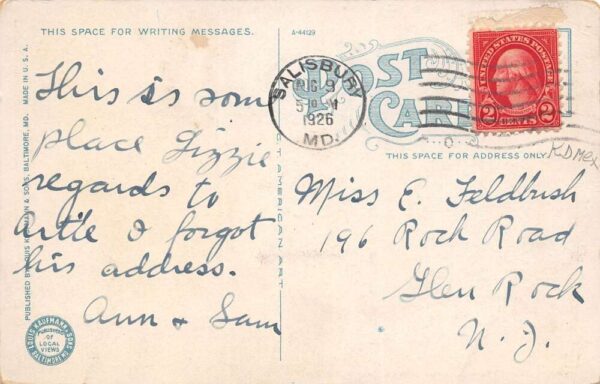 THIS SPACE FOR WRITING MESSAGES.
A-44129
POST
CARD
THIS SPACE FOR ADDRESS ONLY.
UNITED STATES POSTAGE
2 CENTS 2
SALISBURY
AUG 9
5 PM
1926
MD.
This is some
place Lizzie
regards to
Artie I forgot
his address.
Ann & Sam
Miss E. Feldbush
196 Rock Road
Glen Rock
N. J.
PUBLISHED BY LOUIS KAUFMANN & SONS, BALTIMORE, MD. MADE IN U. S. A.
LOUIS KAUFMANN & SONS
PUBLISHERS
OF
LOCAL
VIEWS
BALTIMORE MD.